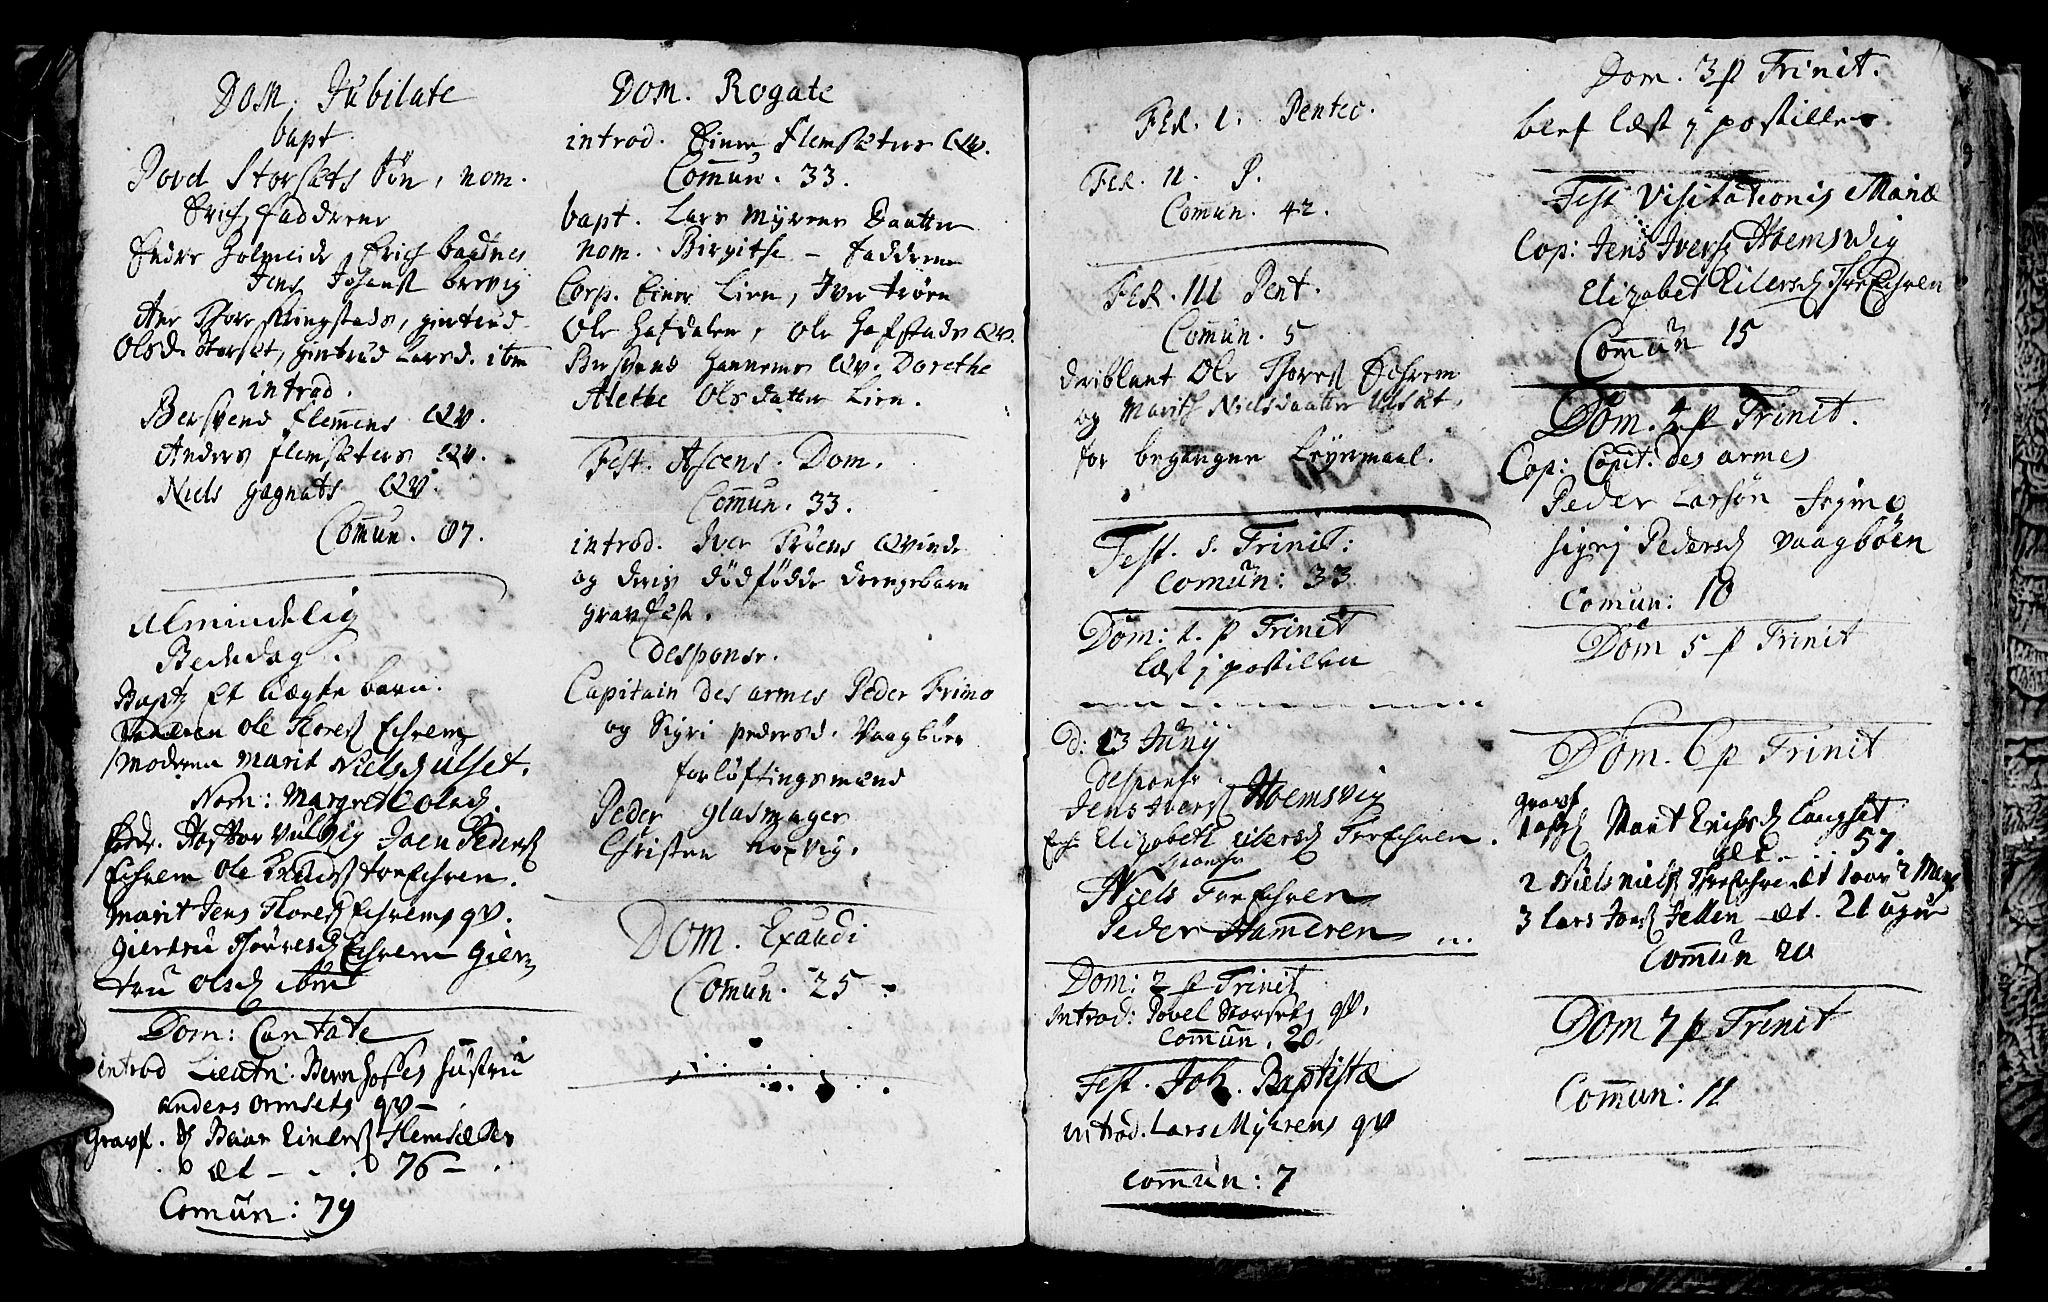 Dom. Jubilate
bapt.
Povel Storsets Sön, nom.
Erich, fadderne
Endre Holmeide Erich
Jens Johans brevig
Ane Thore Ringstads, giertrud
Olsd. Storset, giertrud Larsd. ibm
introd.
Bersvend Flemmens Qv.
Anders Flemsæters Qv.
Niels gagnats Qv.
Comun. 87.
Almindelig
Bededag.
Bapt. Et Uægte barn.
Faderen Ole Thoresß Echrem
Moderen Marit Nielsd Ulset.
Nom: Margret Olasd.
fadr. Joen Pedersß
Echrem Ole Knudsß trefchren.
Marit Jens Thoresß Echrems qv.
Giertru Thoresd Echrem Gier-
tru Olsd ibm
Dom: Cantate
introd Lieutn: Bernhoftes Hustru
anders ormsets qv-
Gravf. Einersß Flemsæter
æt - - . 76 -
Comun: 79
Dom. Rogate
introd. Einer Flemsæters Qv.
Comun. 33.
bapt. Lars Myrens Daatter
nom. Birgithe - fadderne
Corp. Einer Lien, Iver tröen
Ole Hafdalen, Ole Hafstads Qv.
Bersvend Hannems Qv. Dorethe
Alethe Olsdatter Lien.
Fest. Ascens. Dom.
Comun. 33.
introd. Iver Tröens Qvinde
og deris dödfödde drengebarn
gravfest.
Desponsr.
Capitain des armes Peder Frimo
og Sigri pedersd. Vaagböen
forlöftingsmænd
Peder glasmager
Christen
Dom. Exaudi
Comun. 25.
Fer. 1. Pentec.
Fer. 11. P.
Comun. 42.
Fer. 111 Pent.
Comun. 5
deriblant Ole Thoresß Echrem
og Marith Nielsdaatter Ulsæt,
for begangne Leyermaal.
Fest. S. Trinit:
Comun: 33
Dom: 1. p Trinit
læst j postillen
D: 13 Junij
Desponsr
Jens Iversß Hoemsvig
Elizabeth Eilersd Trefchren.
Niels Trefchren
Peder Hameren
Dom: 2 p Trinit
Introd: Povel Storsets qv.
Comun. 20.
Fest. Joh. Baptistæ
introd. Lars Myhrens qv
Comun: 7
Dom. 3 p Trinit.
blef læst j postillen
Fest Visitationis Mariæ
Cop: Jens Iversß Hoemsvig
Elizabet Eilersd Threfchren
Comun 15
Dom. 4 p Trinit.
Cop: Capit: des armes
Peder Larsön
Sigrj Pedersd Vaagböen
Comun: 10
Dom 5 p Trinit
Dom. 6 p Trinit
Gravf
Marit Erichsd Langset
æt - . . 57.
2 Niels Nielsß Threfchren æt 1 aar 2 Maan
3 Lars Jonsß Jellen - æt. 21 uger
Comun 20
Dom 7 p Trinit
Comun: 11